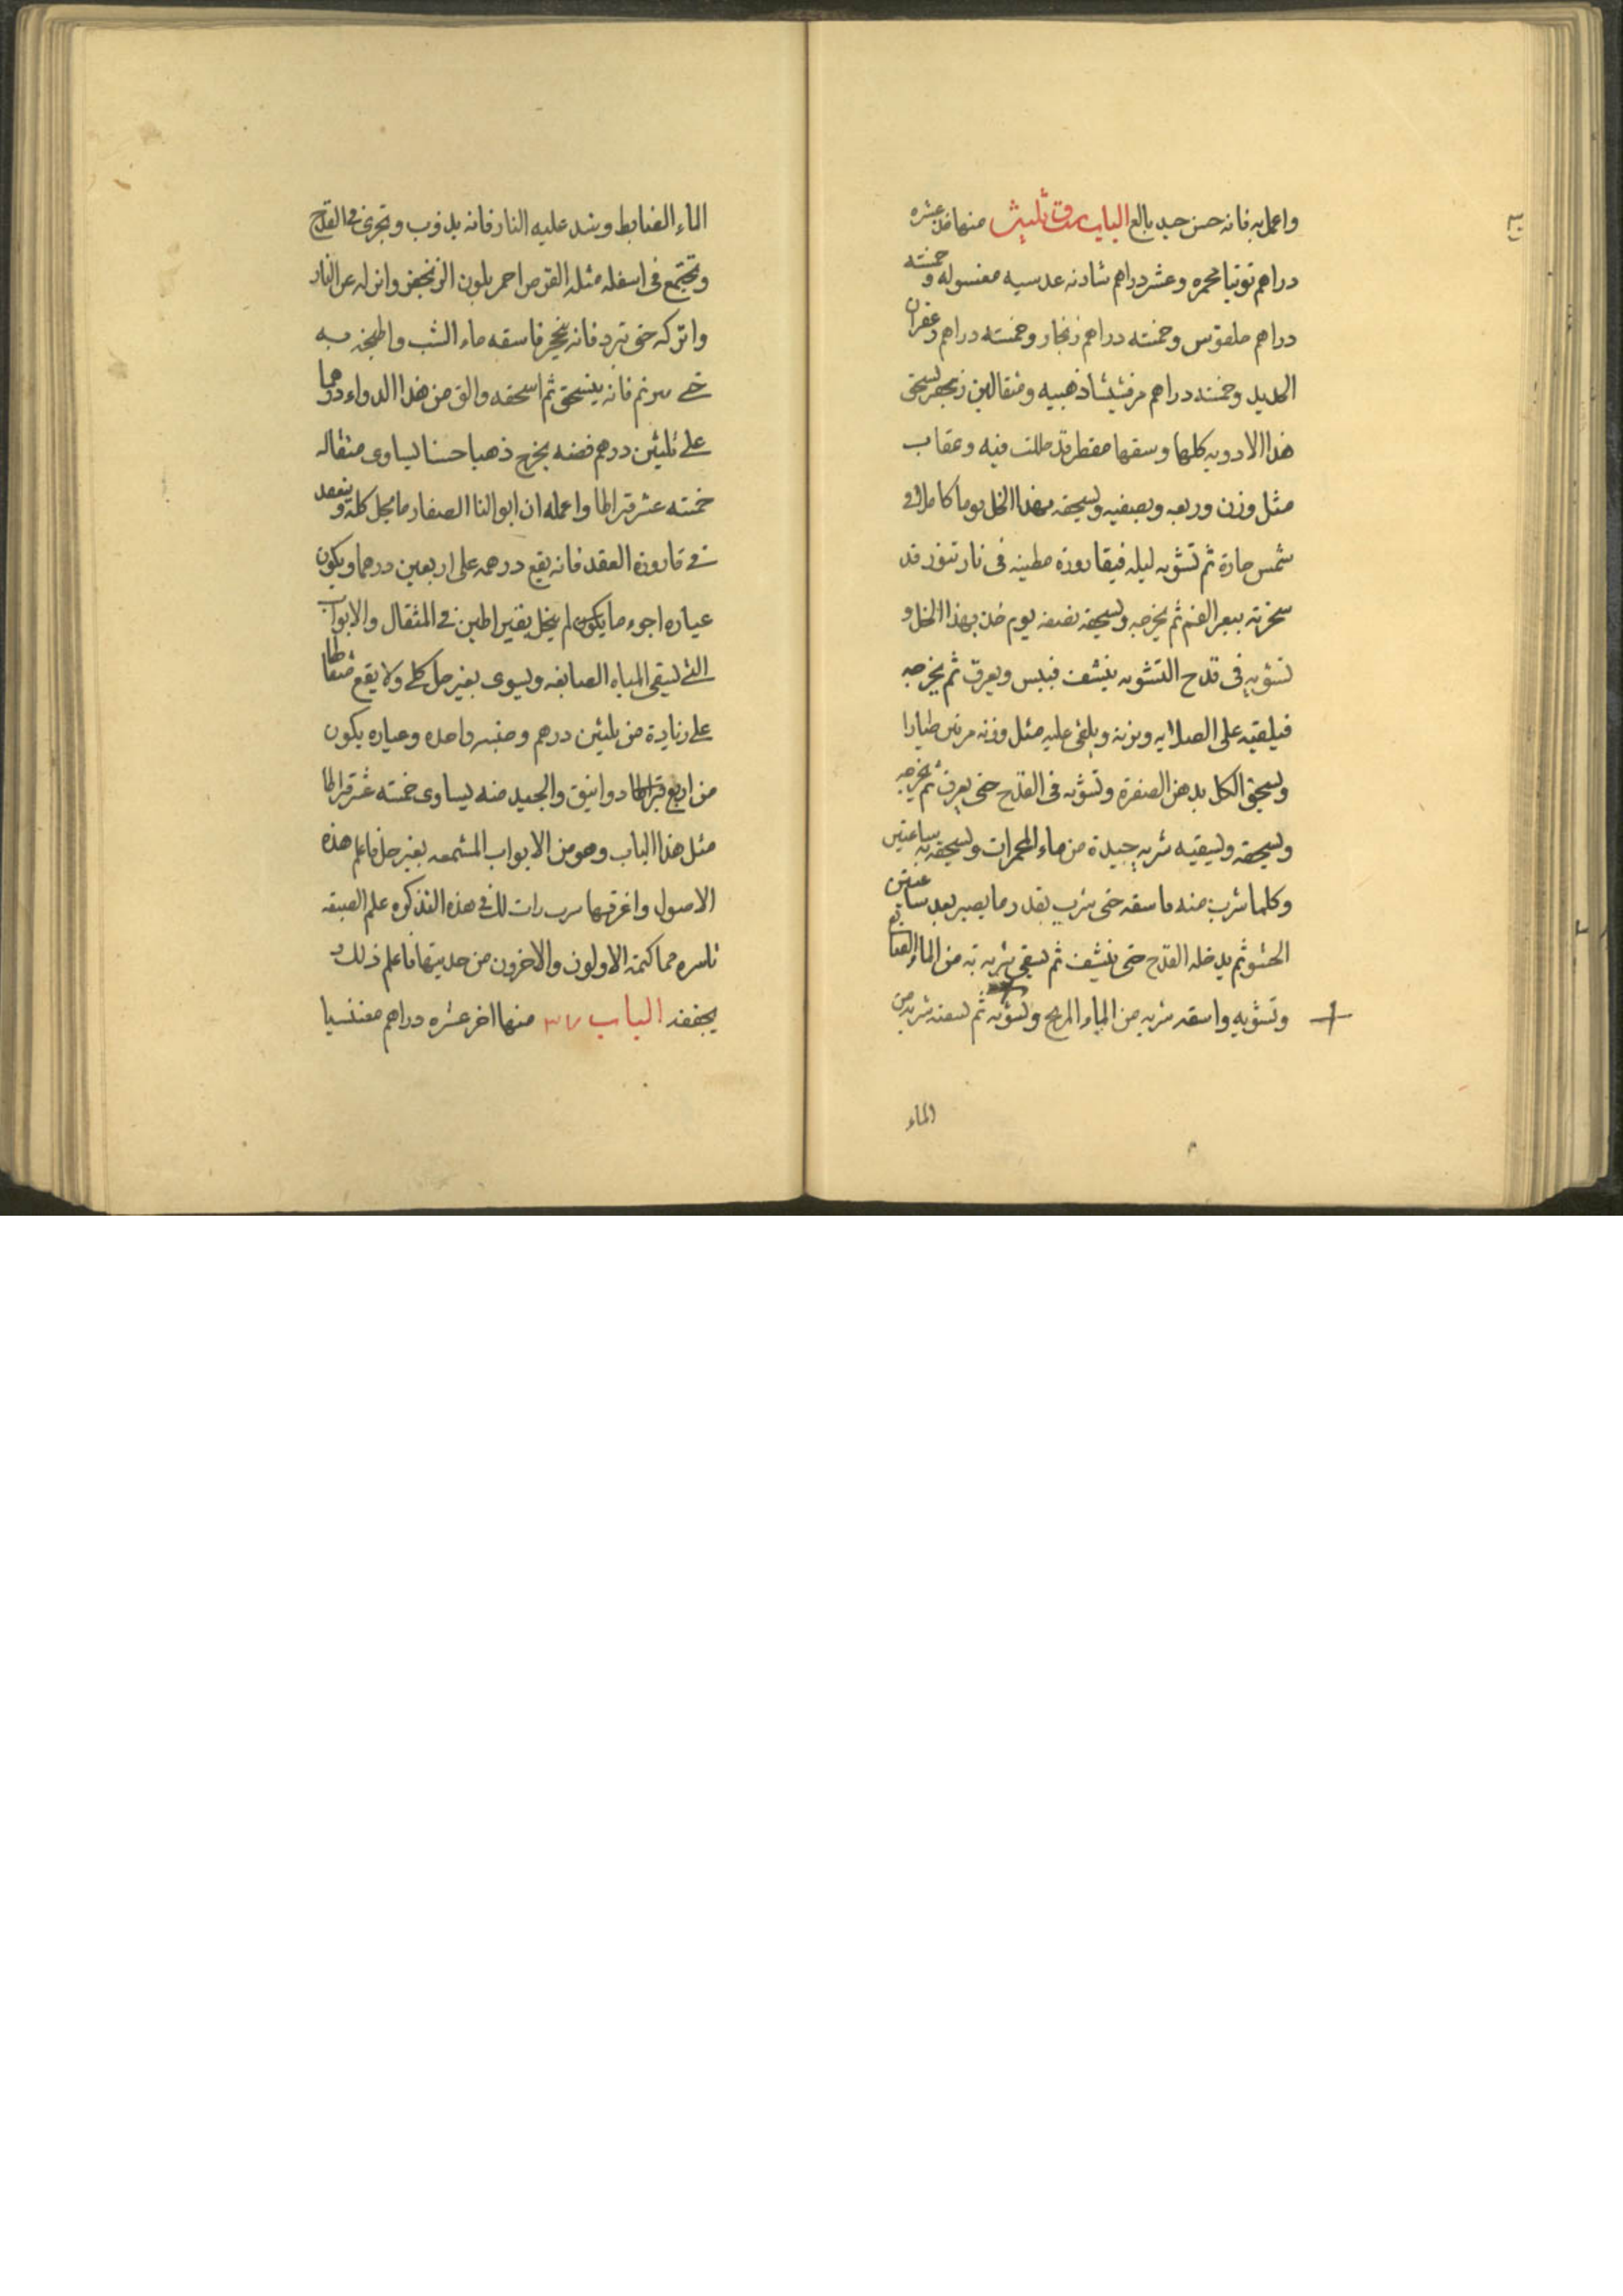 واعمل به فانه حسن جيد بالغ الباب منها خذ عشره
دراهم توتيا محمره وعشر دراهم شادنه عدسيه مغسوله وخمسته
دراهم ملقوتس وخمسته دراهم زنجار وخمسته دراهم زعفران
الحديد وخمسته دراهم مرقشيشا ذهبيه ومثقالين زنجفر يسحق
هذا الادويه كلها وسقها مقطر قد حللت فيه وعقاب
مثل وزن وربعه ويصفيه ويسحقه بهذا الخل يوما كاملا في
شمس حارة ثم تشويه ليله في قاروره مطينه في نار تنور قد
سخرته ببعر الغنم ثم يخرجه ويسحقه نصف يوم بهذا الخل و
تشويه في قدح التشويه ينشف فيبس ويعرق ثم يخرجه
فيلقيه على الصلايه ويزنه ويلقى عليه مثل وزنه مرتين طيارا
ويسحق الكل بدهن الصفرة وتشويه في القدح حتى يعرق ثم يخرجه
ويسحقه ويسقيه شربه جيدة من ماء المحمرات ويسحقه به ساعتين
وكلما شرب منه فاسقه حتى شرب بقدر ما يصير بعد ساعتين
الحشو ثم يدخله القدح حتى ينشف ثم يسقى شربه من الماء الصابغ
وتشويه واسقه شربه من الماء المريح وتشويه ثم تسقه شربه من
الماء
الماء الضابط ويشد عليه النار فانه يذوب ويجرى في القدح
ويجتمع في اسفله مثله القرص احمر بلون الزنجفر وانزله عن النار
واتركه حتى تبرد فاسقه ماء الشب واطبخه به
فانه ينسحق ثم اسحقه والق من هذا الدواء درهما
على ثلثين درهم فضه يخرج ذهبا حسنا يساوى مثقاله
خمسته عشر قيراطا واعمله ان ابوالنا الصفار ما يحل كله وينعقد
في قارورة العقد فانه يقع درهمه على اربعين درهما ويكون
عياره اجود ما يكون لم يخل بقيراطين في المثقال والابواب
التي تسقى المياه الصابغه ويسوى بغير حل كلى ولا يقع
على زيادة من ثلثين درهم وحبه واحده وعياره يكون
من اربع دوانيق والجيد منه يساوى خمسته عشر قيراطا
مثل هذا الباب وهو من الابواب المشمعه بغير حل فاعلم هذه
الاصول واعرفها في هذه التذكره علم الصبغه
باسره مما كتمه الاولون والاخرون من حديثها فاعلم ذلك و
يجففه الباب ٣٧ منها اخر عشره دراهم مغنسيا